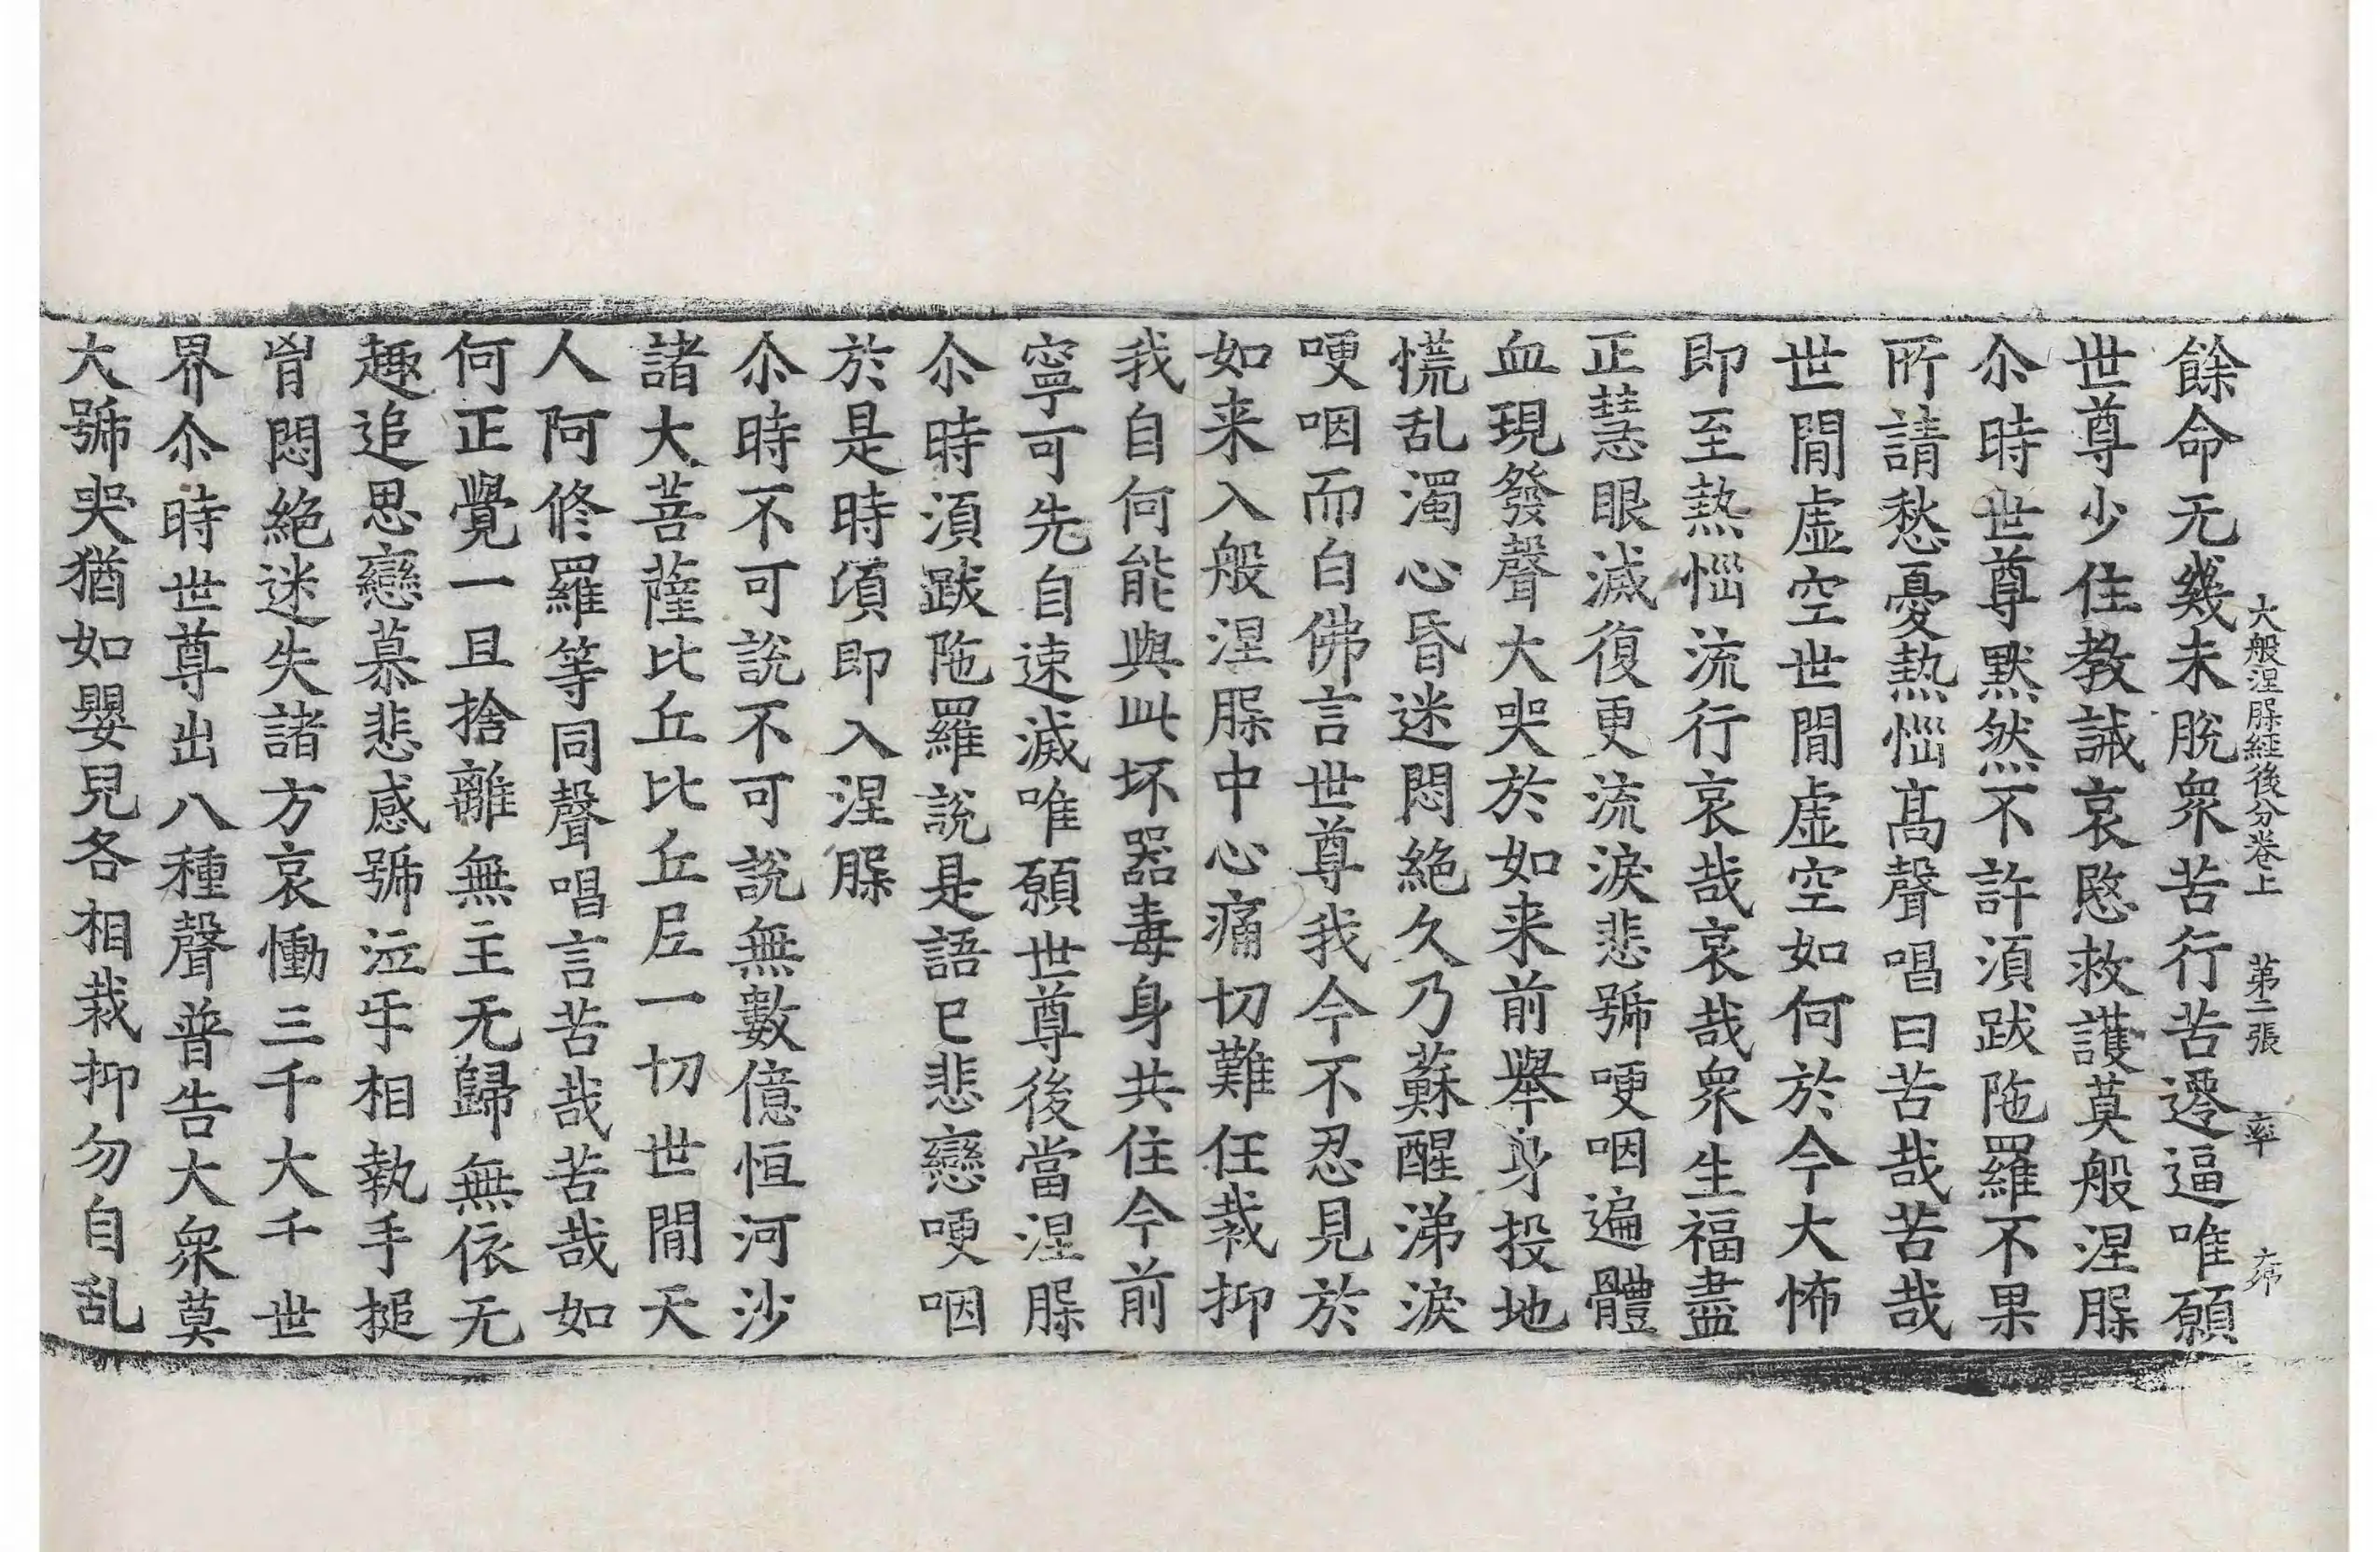 大般涅槃經後分卷上 第二張 率
餘命无幾未脫衆苦行苦遷逼唯願
世尊少住教誡哀愍救護莫般涅槃
尒時世尊默然不許須跋陁羅不果
所請愁憂熱惱高聲唱曰苦哉苦哉
世間虛空世間虛空如何於今大怖
即至熱惱流行哀哉哀哉衆生福盡
正慧眼滅復更流淚悲號哽咽遍體
血現發聲大哭於如来前舉身投地
慌乱濁心昏迷悶絶久乃蘇醒涕淚
哽咽而白佛言世尊我今不忍見於
如来入般涅槃中心痛切難任裁抑
我自何能與此坏器毒身共住今前
寧可先自速滅唯願世尊後當涅槃
尒時須跋陁羅說是語已悲戀哽咽
於是時頃即入涅槃
尒時不可說不可說無數億恒河沙
諸大菩薩比丘比丘尼一切世間天
人阿修羅等同聲唱言苦哉苦哉如
何正覺一旦捨離無主无歸無依无
趣追思戀慕悲感號泣乎相執手搥
胷悶絶迷失諸方哀慟三千大千世
界尒時世尊出八種聲普告大衆莫
大號哭猶如嬰兒各相裁抑勿自乱